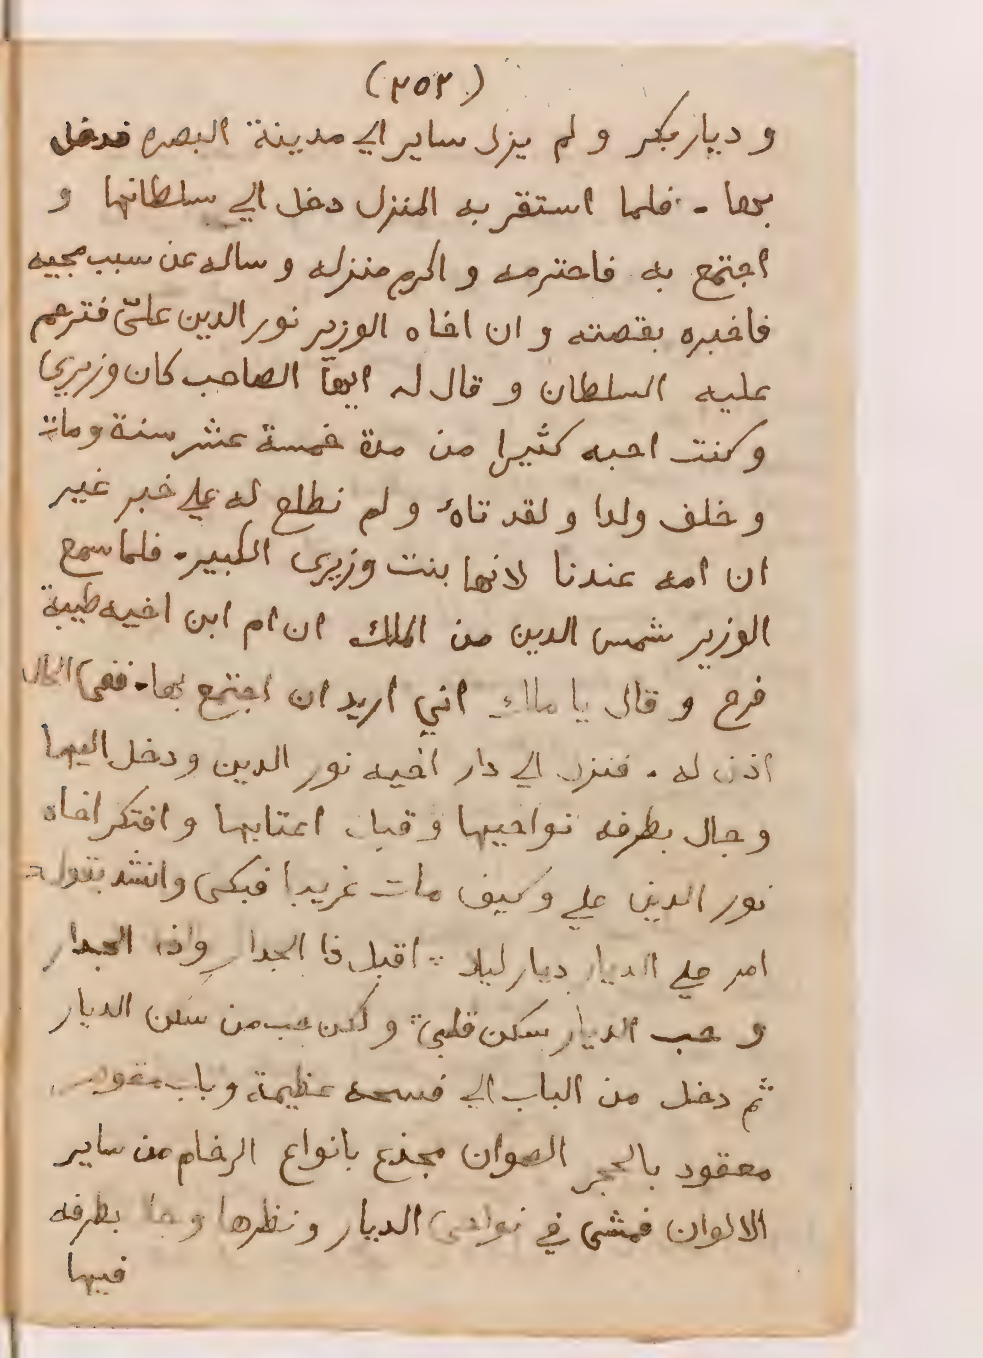 (٢٥٢)
و ديار بكر و لم يزل ساير الي مدينة البصره فدخل
بها . فلما استقر به المنزل دخل الي سلطانها و
اجتمع به فاحترمه و اكرم منزله و ساله عن سبب مجيه
فاخبره بقصته و ان اخاه الوزير نور الدين عليّ فترحم
عليه السلطان و قال له ايهاّ الصاحب كان وزيري
و كنت احبه كثيرا من مدة خمسة عشر سنة ومات
و خلف ولدا و لقد تاه و لم نطلع له علي خبر غير
ان امه عندنا لانها بنت وزيري الكبير . فلما سمع
الوزير شمس الدين من الملك ان ام ابن اخيه طيبة
فرح و قال يا ملك اني اريد ان اجتمع بها . ففي الحال
اذن له . فنزل الي دار اخيه نور الدين و دخل اليها
و جال بطرفه نواحيها و قبل اعتابها و افتكر اخاه
نور الدين علي و كيف مات غريبا فبكي وانشد يقول
امر علي الديار ديار ليلا ∴ اقبل ذا الجدار وذا الجدار
و حب الديار سكن قلبي ∴ و لكن حب من سكن الديار
ثم دخل من الباب الي فسحه عظيمة و باب مقوصر
معقود بالحجر الصوان مجذع بانواع الرخام من ساير
الالوان فمشي في نواحي الديار و نظرها وجال بطرفه
فيها